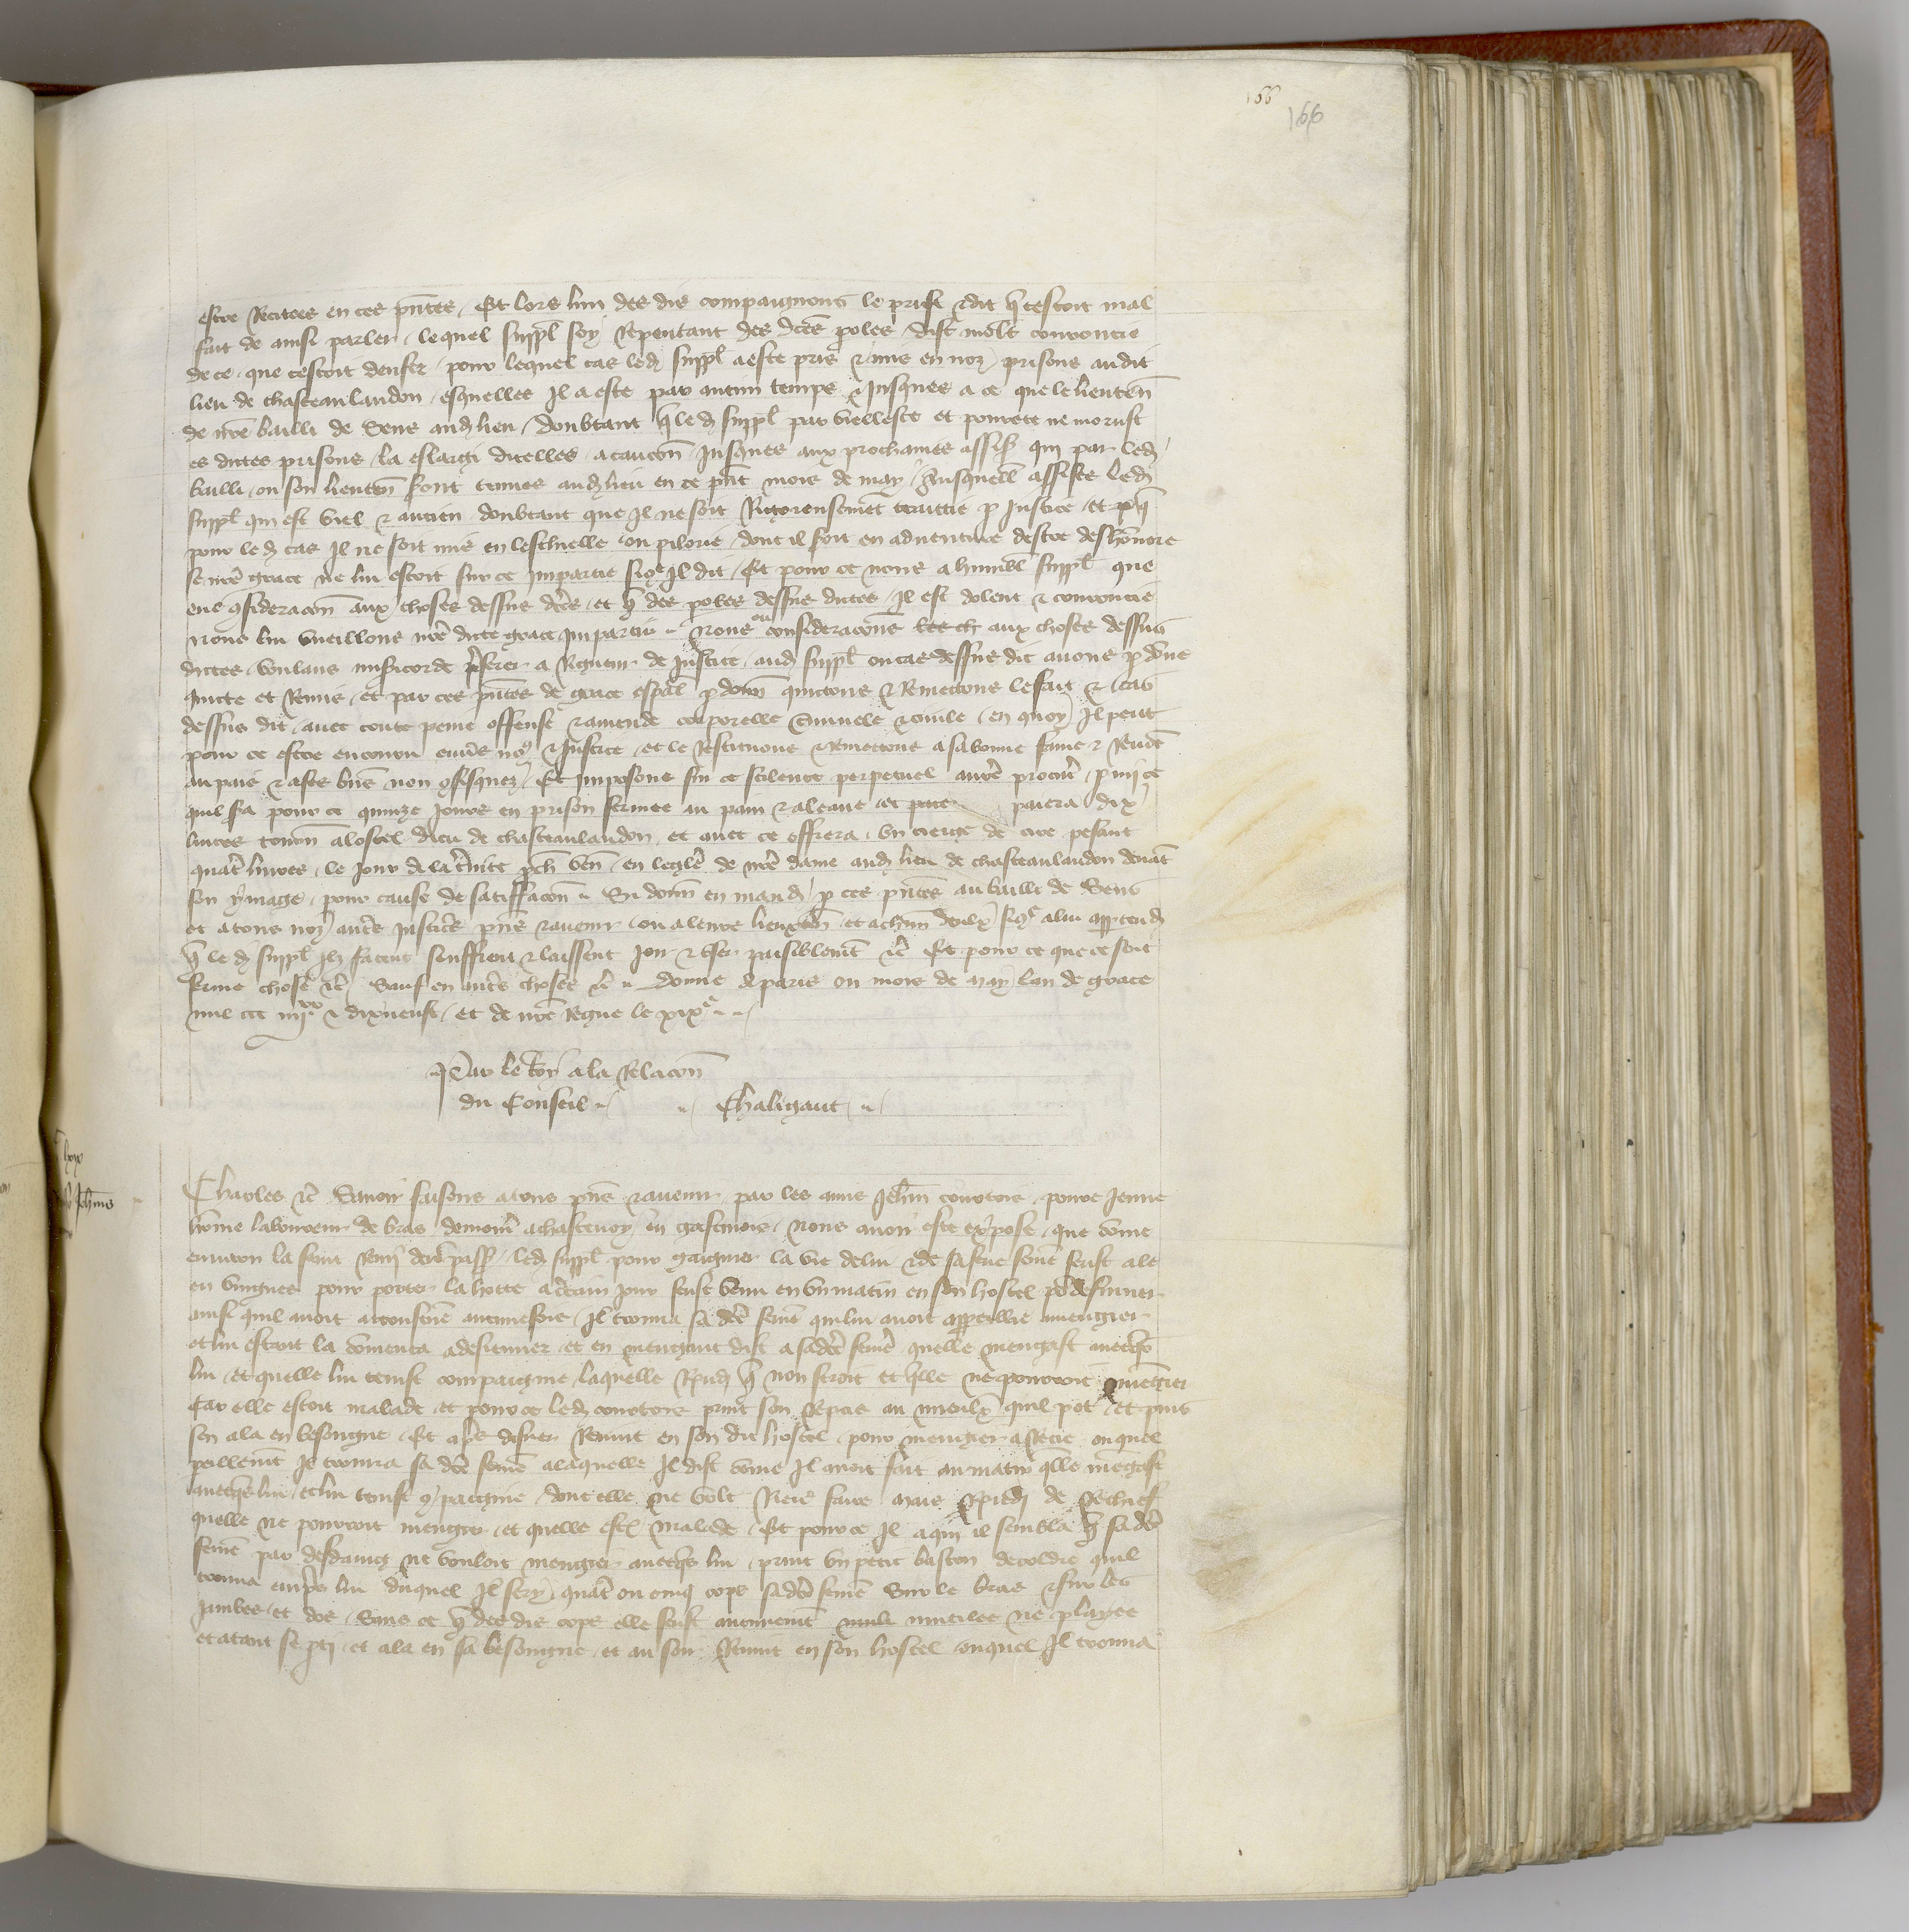 166
166
estre recitees en ces pntes / Et lors lun des dis compaignons le prist & dit q cestoit mal
fait de ainsi parler / lequel suppl soy repentant des dces poles / dist molt courroucie
de ce / que cestoit denfer / pour lequel cas led suppl a este pris & mis en noz prisons audit
lieu de chasteaulandon / esquelles Il a este par aucun temps & Jusques a ce que le lieuten
de nre bailli de Sens aud lieu / doubtant q led suppl par viellesce et povrete ne morust
es dictes prisons / la eslargi dicelles a caucon Jusques aux prochaines assis qui par led
bailli ou son lieuten sont tenues aud lieu en ce pnt mois de may / Ausquell assises led
suppl qui est viel & ancien doubtant que Il ne soit Rigoreusemet traittie p Justice / et q
pour led cas Il ne soit mis en leschielle ou pilorie / dont il soit en adventure destre deshonnore
se nre grace ne lui estoit sur ce Impartie sicoe Il dit / Et pour ce nous a humbl suppl que
eue gsideracon aux choses dessus dces / et q des poles dessus dictes / Il est dolent & courroucie
Nous lui vueillons nre dicte grace Impartir Nous eu consideracons les ch aux choses dessus
dictes / voulans misericorde pferer a Rigueur de Justice / aud suppl ou cas dessus dit avons pdone
quicte et Remis / et par ces pntes de grace espal pdonn quictons & Remettons le fait & cas
dessus dit / avec toute peine offense & amende corporelle criminele & civile / en quoy Il peut
pour ce estre encouru envs nos & Justice / et le Restituons & Remettons a sa bonne fame & Renom
au pais & a ses biens non gfisquez / Et Imposons sur ce scilence perpetuel a nre procur / pmi ce
quil sa pour ce quinze Jours en prison fermee au pain & a leaue et paiera dix
livres tourn a lostel dieu de chasteaulandon / et avec ce offrera un cierge de cire pesant
quatre livres / le Jour de la trinite pch ven en leglise de nre dame aud lieu de chasteaulandon devat
son ymage / pour cause de satiffacon Si donn en mand p ces pntes au bailli de Sens
et a tous noz aut's Justic's pns & avenir ou a leurs lieuxten et a chun deulx sicoe a lui appartend
q led suppl Ilz facent seuffrent & laissent Joir & user paisiblemt &c Et pour ce que ce soit
ferme chose &c Sauf en aut's choses &c donne a paris ou mois de may lan de grace
mil ccc iiijxx & dixneuf / et de nre Regne le xixe
Par le Roy a la Relacon
du Conseil Chaligaut
Charles &c Savoir faisons a tous pns & avenir par les amis Jehan courtois povre Jeune
home laboureur de bras demour a chastenoy en gastinois / Nous avoir este expose / que come
environ la saint Remi dere pass / led suppl pour gaigner la vie de lui & de sa feme feust ale
en vinguer pour porter la hotte a certain Jour feust venu en un matin en son hostel po desiuner
ainsi quil avoit acoustume aucunesfois / Il trouva sa dce feme qui lui avoit appareillie a mengier
et lui estant la comenca a desiuner / et en mengant dist a sa dce feme quelle mengast avecqs
lui / et quelle lui tenist compaignie / laquelle Rpnd q non feroit et qlle ne pourroit mengier
Car elle estoit malade / et pour ce led courtois print son Repas au mieulx quil pot / et puis
sen ala en besongne / Et apres disner Revint en son dit hostel pour mengier a Recie / ouquel
paillemt Il trouva sa dce feme a laquelle Il dist come Il avoit fait au matin qlle mengast
avecqs lui / et lui tenist gpaignie / dont elle ne volt Riens faire mais Rpndi de Rechief
quelle ne pourroit mengier / et quelle est malade / Et pour ce Il a qui il sembla q sa dce
feme par desdaing ne vouloit mengier avecqs lui / print un petit baston de coldre quil
trouva empres lui duquel Il fery quatre ou cinq cops sa dce feme Sur le bras & sur les
Jambes / et dos / Sans ce q des dis cops elle feust aucunemt mutilee ne playee
et atant se pti / et ala en sa besongne / et au soir Revint en son hostel / ouquel Il trouva